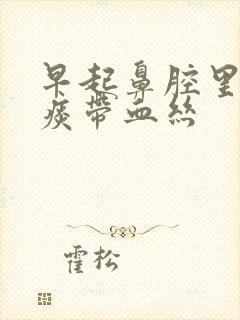 早起鼻腔里
痰帶血絲
霍松